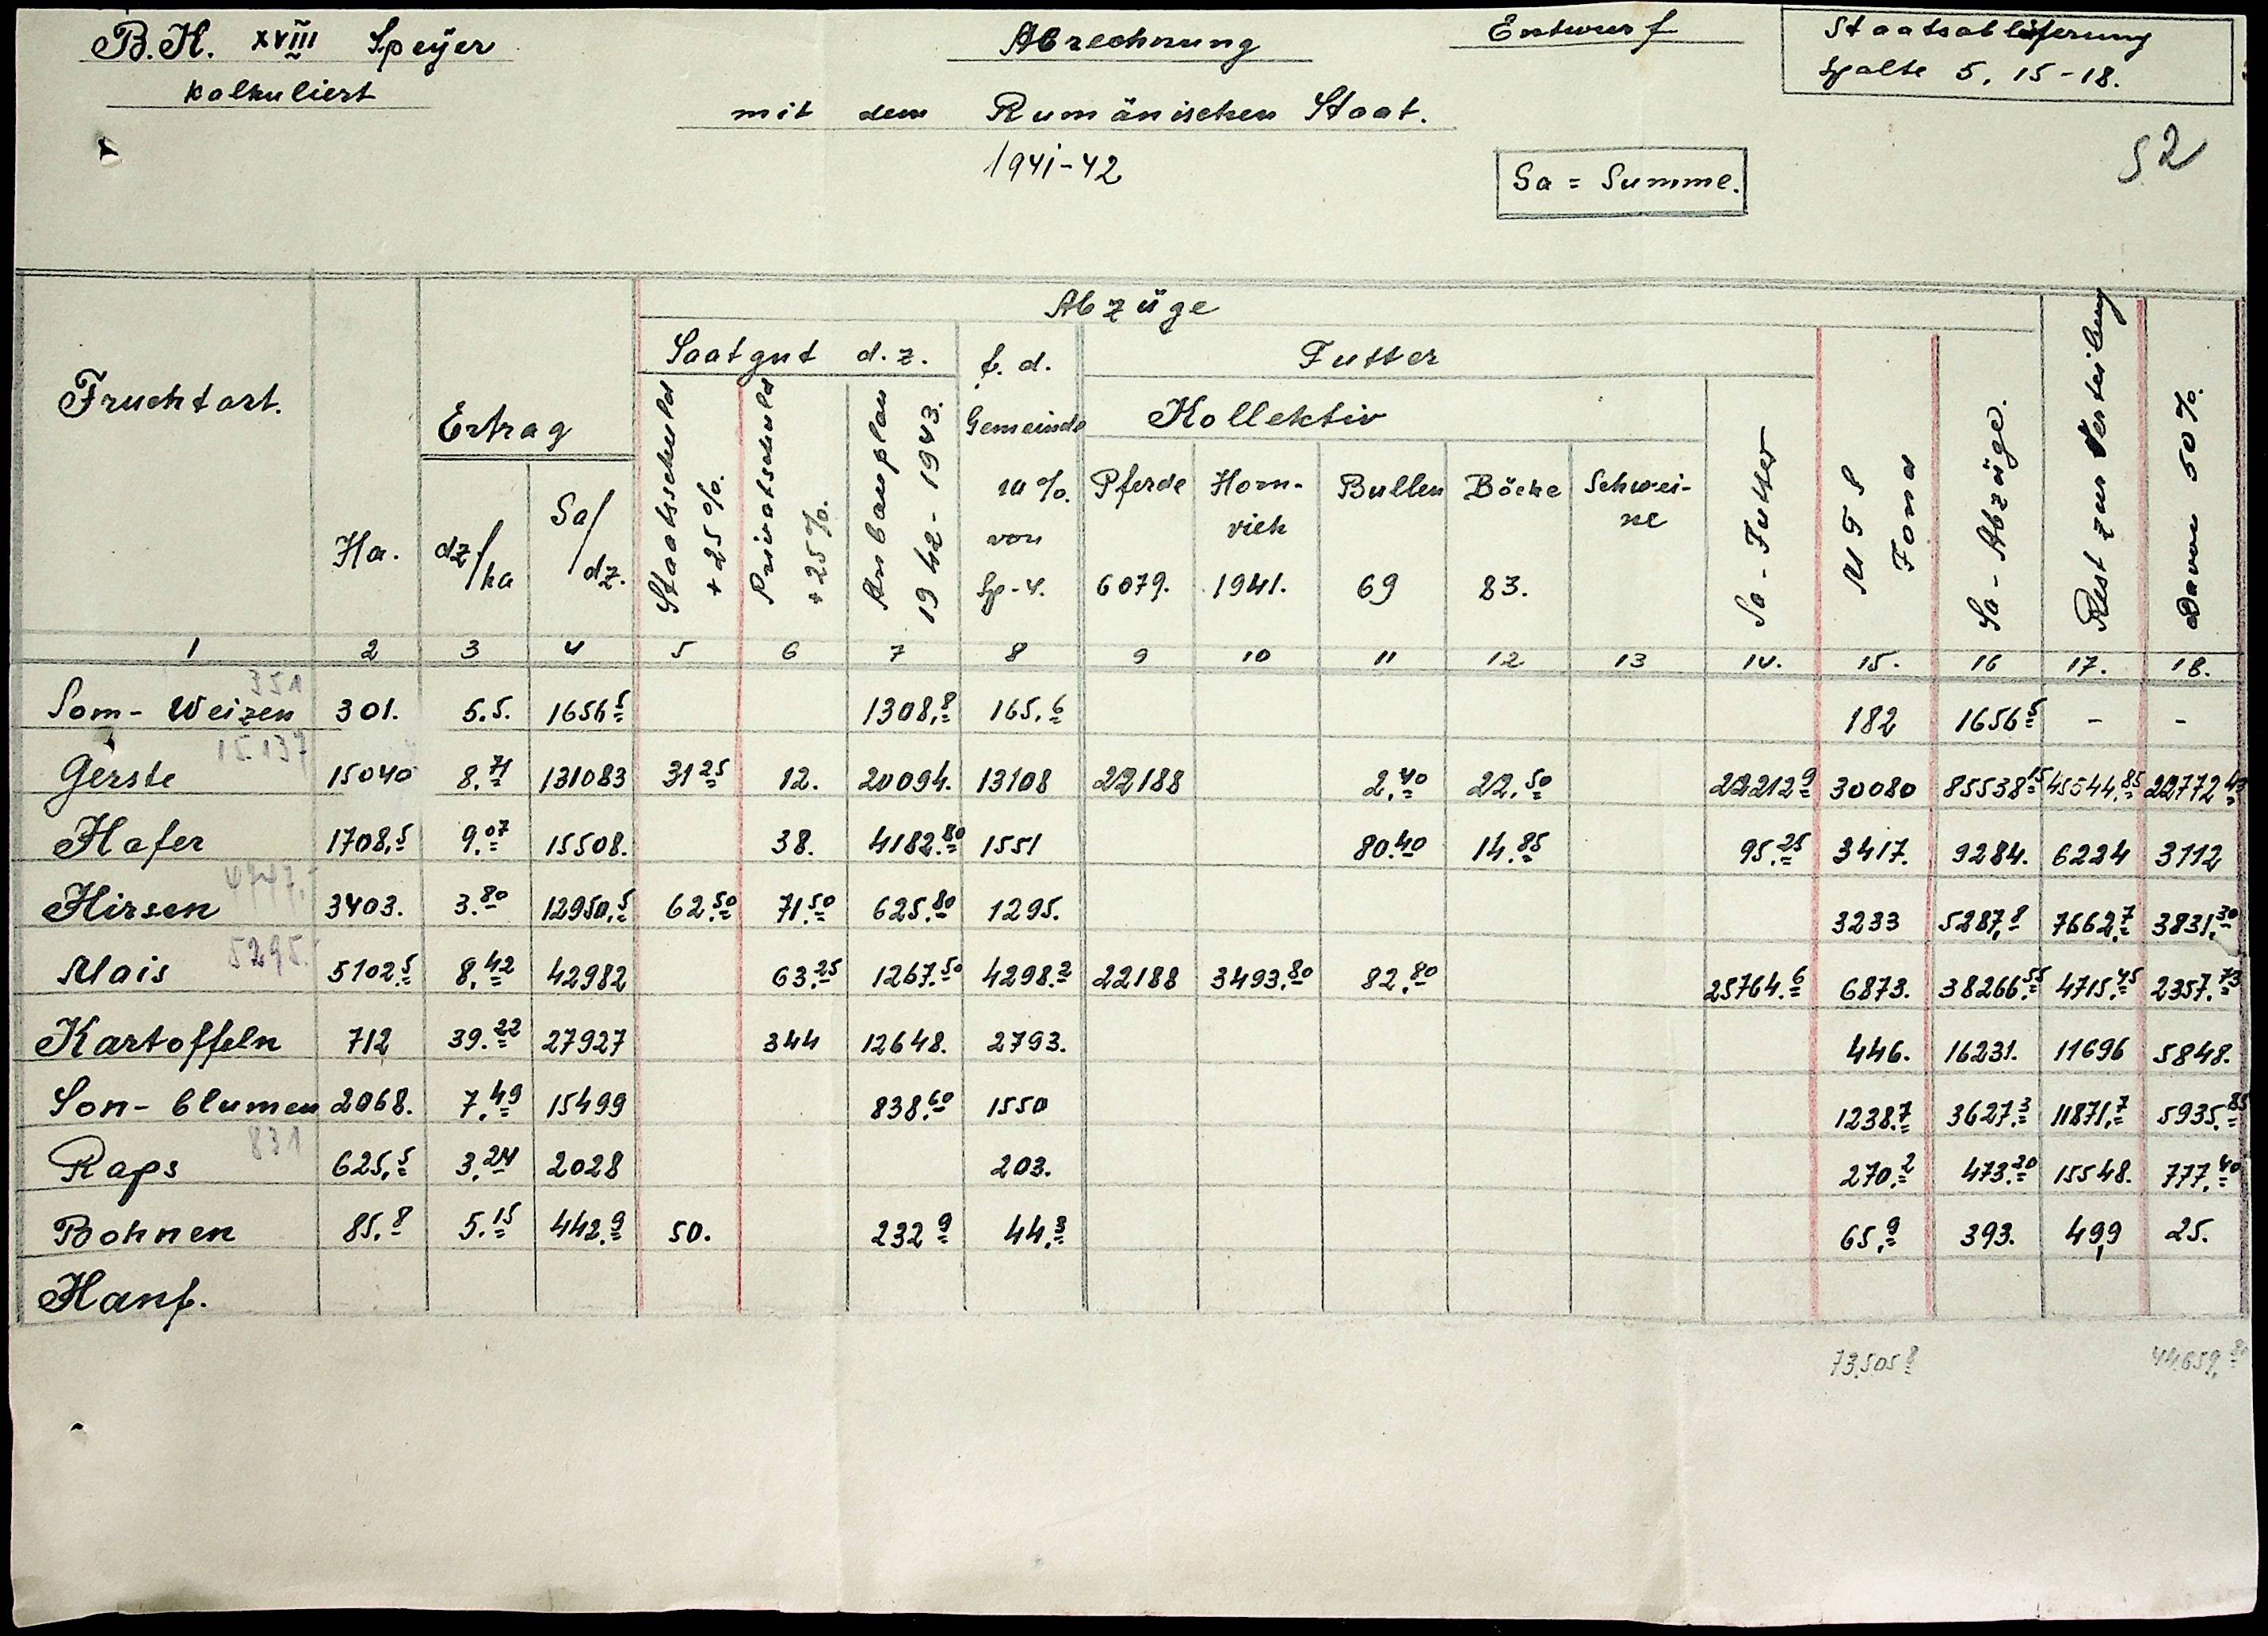 B.K. XVIII Speyer
kalkuliert
Abrechnung
mit dem Rumänischen Staat.
1941-42
Entwurf
Staatsablieferung
Spalte 5, 15-18.
Sa = Summe.
52
Fruchtart.
Ha.
Ertrag
dz/ha
Sa/dz.
Abzüge
Saatgut d.z.
Staatsschuld + 25%.
Privatschuld + 25%.
Anbauplan 1942-1943.
f. d. Gemeinde 10%. von Sp-4.
Futter
Kollektiv
Pferde 6079.
Hornvieh 1941.
Bullen 69
Böcke 83.
Schwei-
ne
Sa-Futter
MTS Fond
Sa-Abzüge.
Rest zur Verteilung
Davon 50%.
1 2 3 4 5 6 7 8 9 10 11 12 13 14. 15. 16 17. 18.
351
Som-Weizen 301. 5.5. 1656,5 1308,8 165,6 182 1656,5 - -
15.137
Gerste 15040 8,71 131083 31,25 12. 20094. 13108 22188 2,40 22,50 22212,9 30080 85538,15 45544,85 22772,43
Hafer 1708,5 9,07 15508. 38. 4182,80 1551 80,40 14,85 95,25 3417. 9284. 6224 3112
Hirsen 3403. 3,80 12950,5 62,50 71,50 625,80 1295. 3233 5287,8 7662,7 3831,30
5295.
Mais 5102,5 8,42 42982 63,25 1267,50 4298,2 22188 3493,80 82,80 25764,6 6873. 38266,55 4715,45 2357,73
Kartoffeln 712 39,22 27927 344 12648. 2793. 446. 16231. 11696 5848.
Son-blumen 2068. 7,49 15499 838,60 1550 1238,7 3627,3 11871,7 5935,85
831
Raps 625,5 3,24 2028 203. 270,2 473,20 15548. 777,40
Bohnen 85,8 5,15 442,9 50. 232,9 44,3 65,9 393. 49,9 25.
Hanf.
73.505,8 44659,80